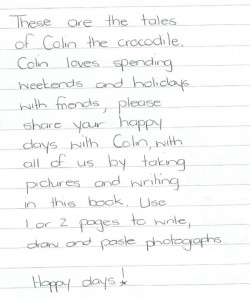 These are the tales
of Colin the crocodile.
Colin loves spending
weekends and holidays
with friends, please
share your happy
days with Colin, with
all of us by taking
pictures and writing
in this book. Use
1 or 2 pages to write,
draw and paste photographs
Happy days!